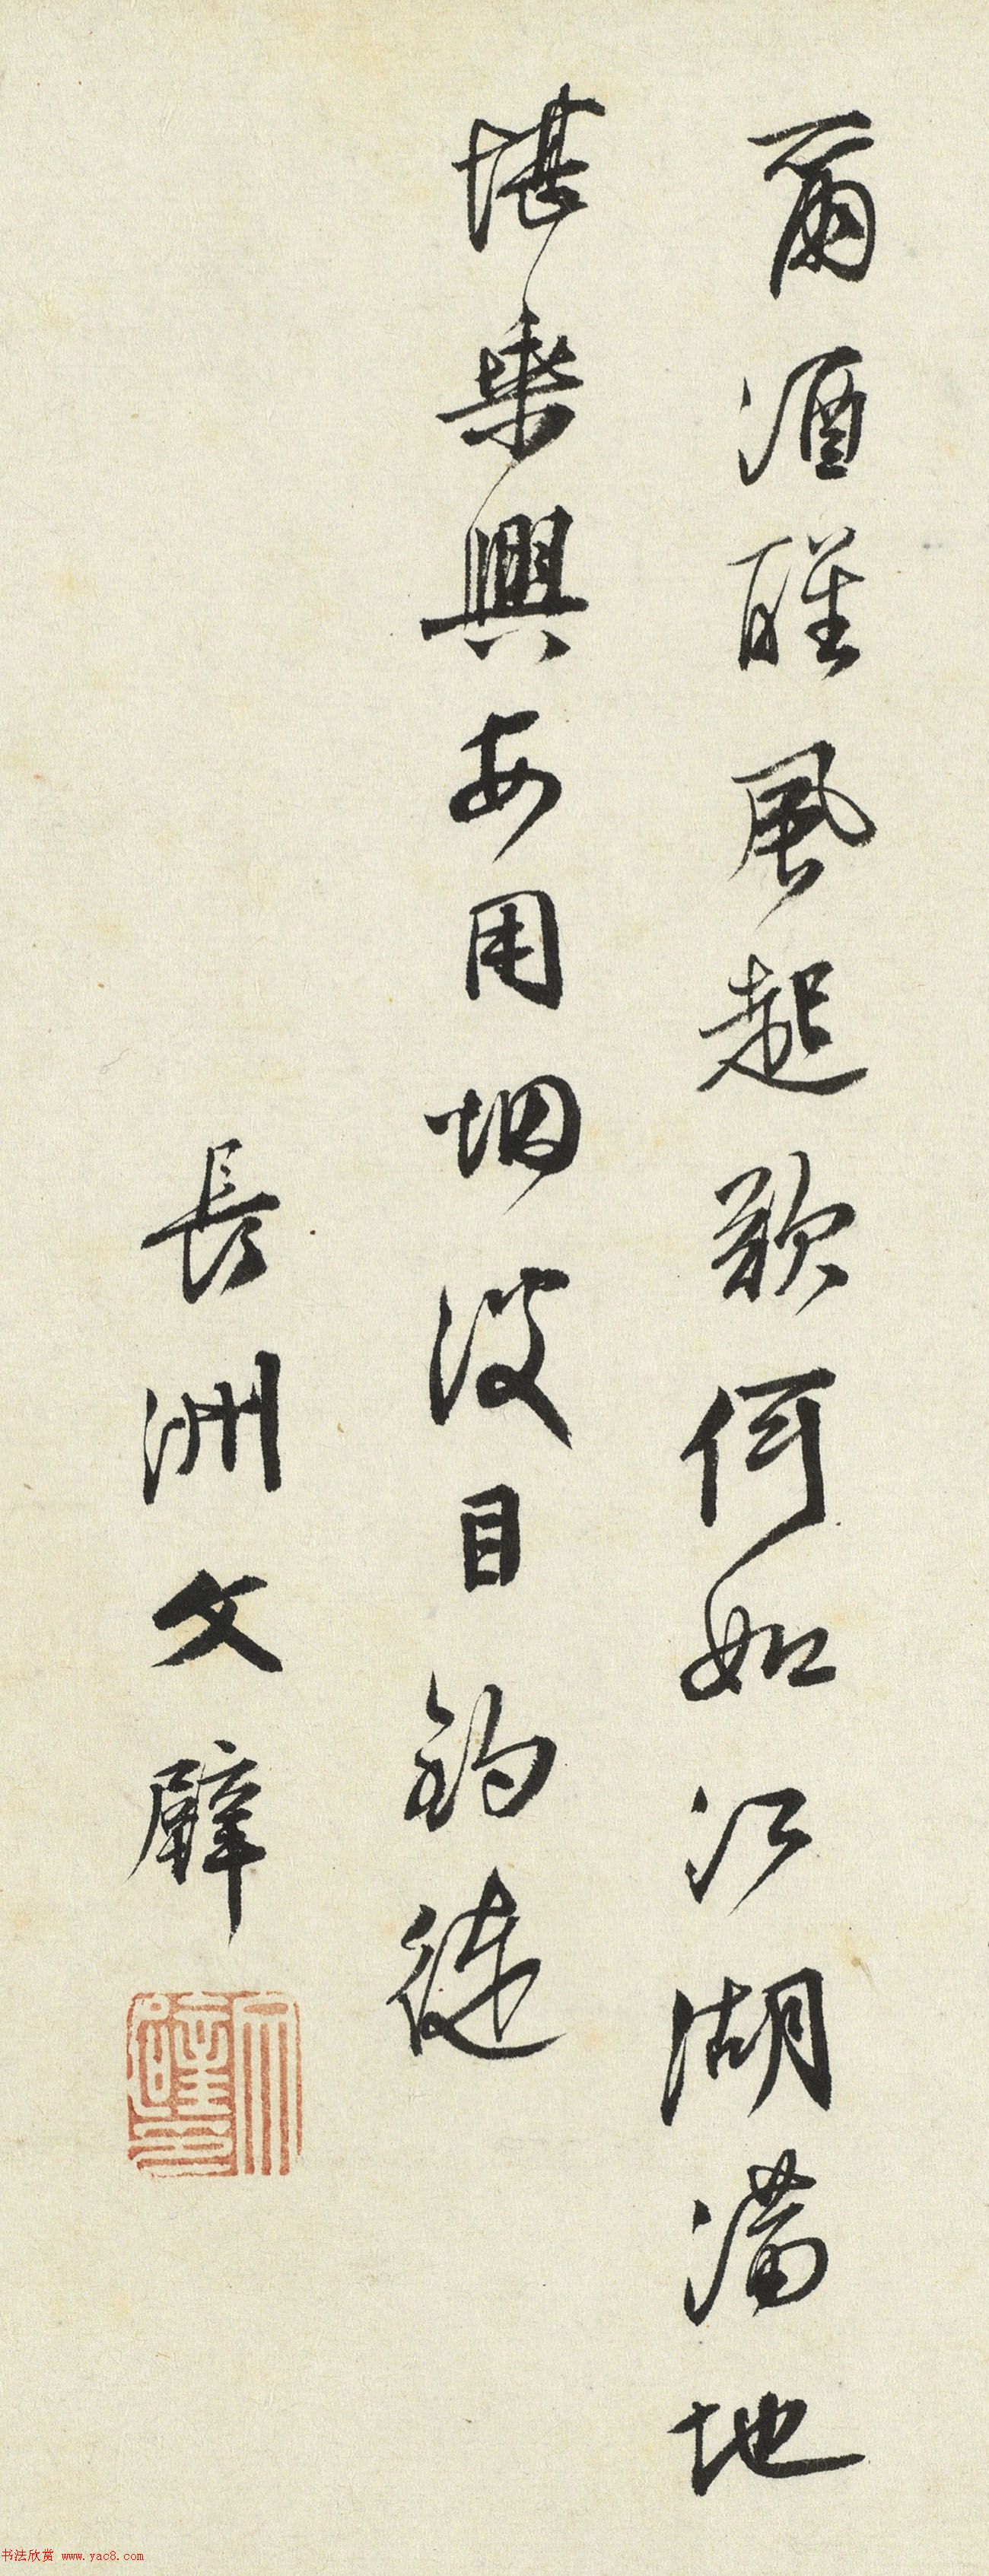 爾酒醒風起歌何如江湖滿地
堪乘興安用烟波目釣徒
長洲文璧
书法欣赏 www.yac8.com